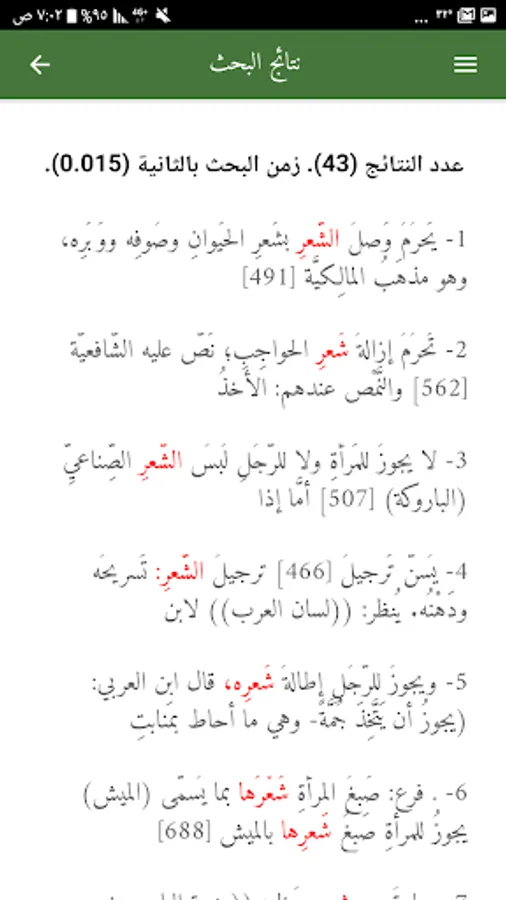 ٧:٠٢ ص ٩٥% 4G+ ٣٢° ...
نتائج البحث
عدد النتائج (43). زمن البحث بالثانية (0.015).
1- يَحرُمُ وَصلُ الشَّعرِ بشَعرِ الحَيوانِ وصُوفِه ووَبَرِه،
وهو مذهَبُ المالِكيَّة [491]
2- تَحرُمُ إزالةُ شَعرِ الحواجِبِ؛ نَصَّ عليه الشَّافعيّة
[562] والنَّمْص عندهم: الأَخذُ
3- لا يجوزُ للمَرأةِ ولا للرَّجُلِ لُبسُ الشَّعرِ الصِّناعيِّ
(الباروكة) [507] أمَّا إذا
4- يُسَنُّ تَرجيلُ [466] ترجيلُ الشَّعرِ: تَسريحُه
ودَهْنُه. يُنظر: ((لسان العرب)) لابن
5- ويجوزُ للرَّجُلِ إطالةُ شَعرِه، قال ابن العربي:
(يجوزُ أن يَتَّخِذَ جُمَّةً- وهي ما أحاط بمَنابتِ
6- . فرع: صَبغُ المرأةِ شَعْرَها بما يُسَمَّى (الميش)
يجوزُ للمرأةِ صَبغُ شَعرِها بالميش [688]